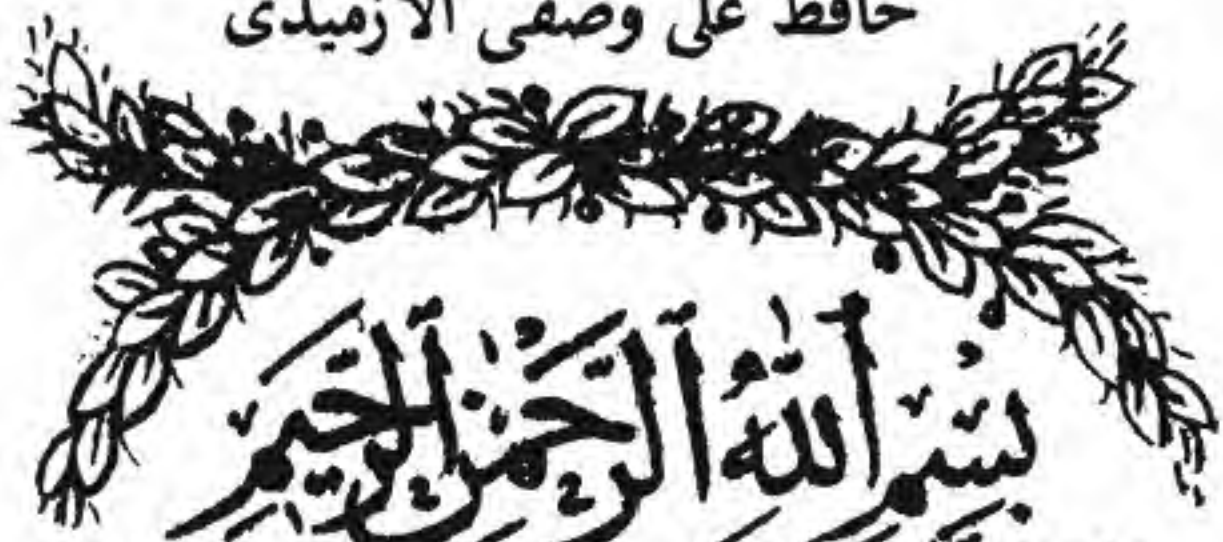 حافظ على وصفى الازميدى
بِسْمِ ٱللَّهِ ٱلرَّحْمَٰنِ ٱلرَّحِيمِ